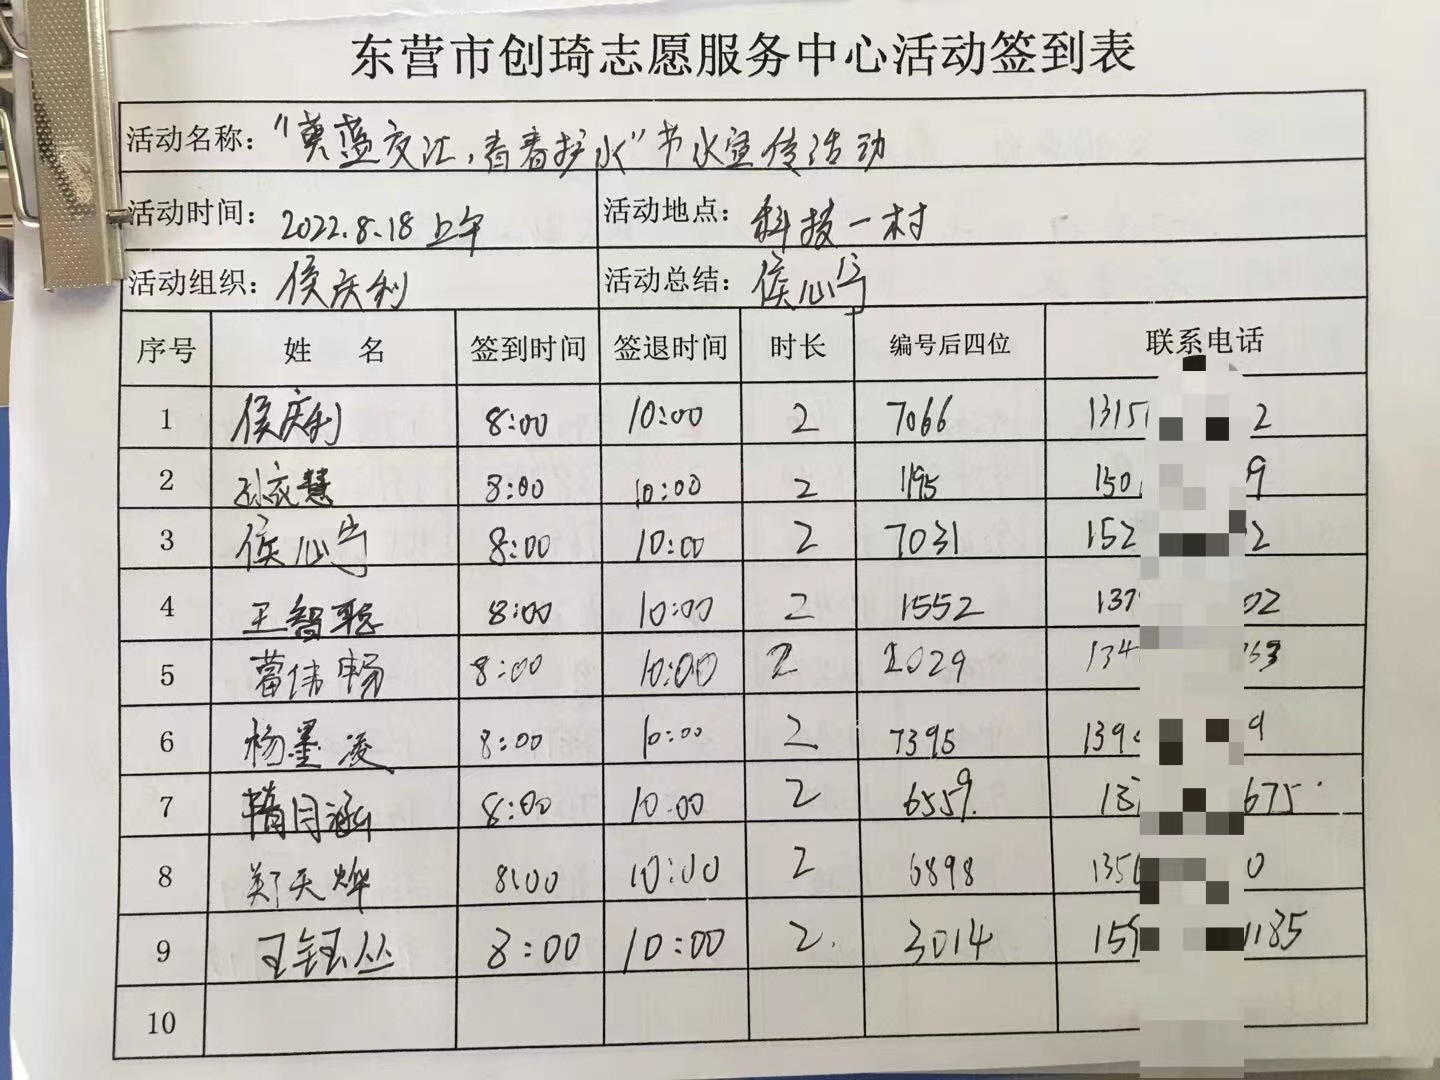 东营市创琦志愿服务中心活动签到表
活动名称：“黄蓝交汇，青春护水”节水宣传活动
活动时间：2022.8.18上午 活动地点：科技一村
活动组织：侯庆利 活动总结：侯心宁
序号 姓 名 签到时间 签退时间 时长 编号后四位 联系电话
1 侯庆利 8:00 10:00 2 7066 1315 2
2 孙文慧 8:00 10:00 2 1195 150 9
3 侯心宁 8:00 10:00 2 7031 152 2
4 王智聪 8:00 10:00 2 1552 137 02
5 葛伟畅 8:00 10:00 2 2029 134 63
6 杨墨凌 8:00 10:00 2 7395 139 9
7 月涵 8:00 10:00 2 6559. 13 675
8 郑天烨 8:00 10:00 2 6898 135 0
9 王钰丛 8:00 10:00 2. 3014 159 1185
10